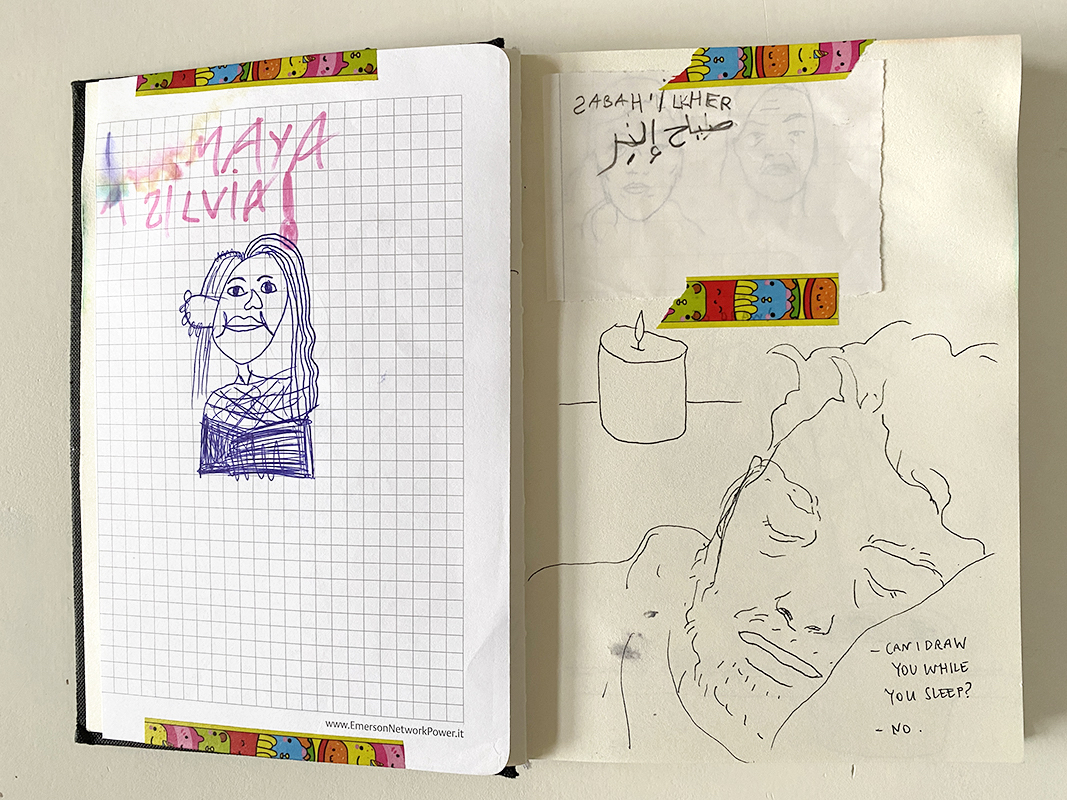 MAYA
A SILVIA
www.EmersonNetworkPower.it
SABAH'ILKHER
صباح إلخير
- CAN I DRAW
YOU WHILE
YOU SLEEP?
- NO.